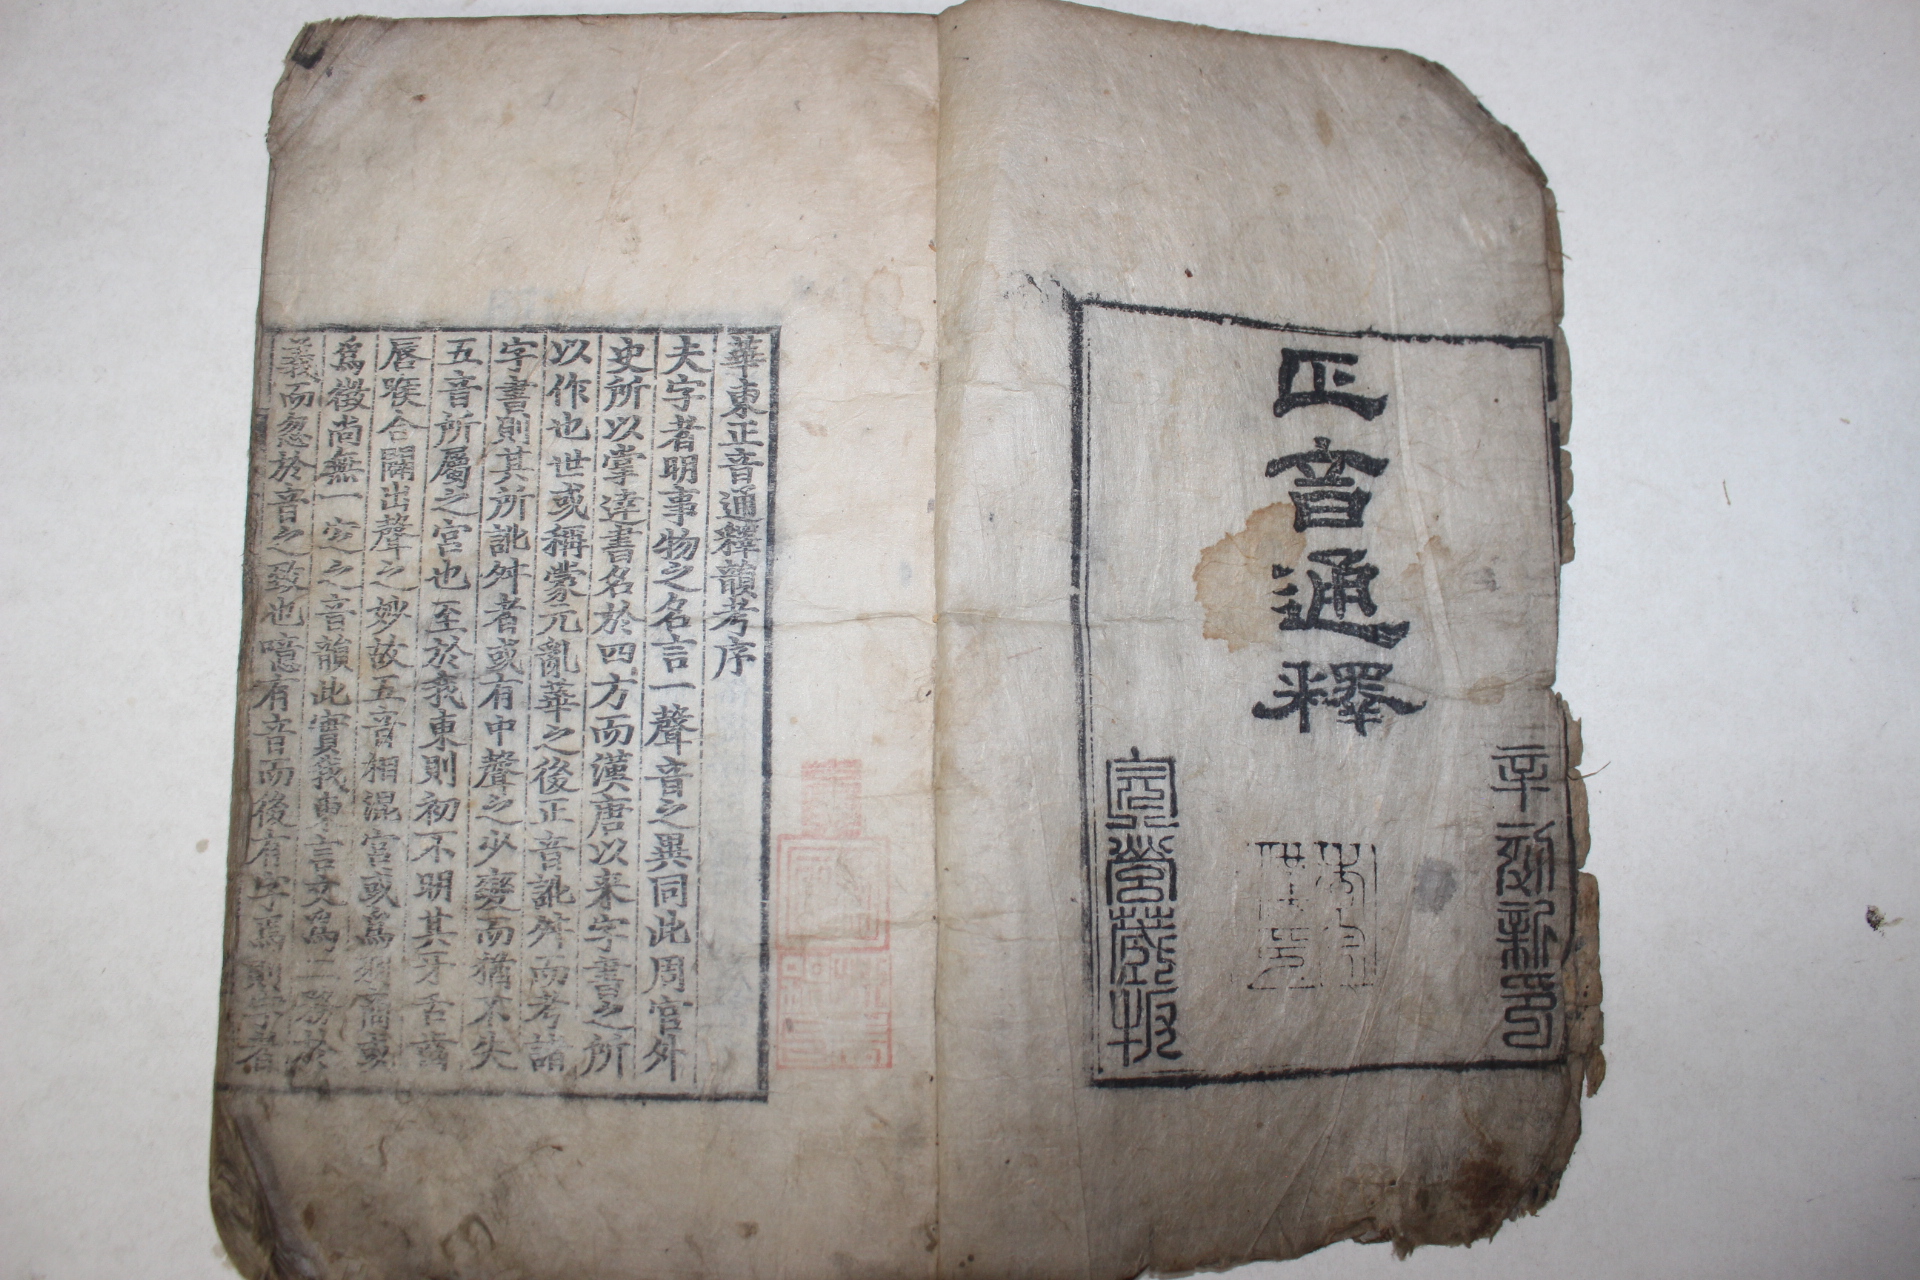 正音通釋
辛卯新印
完營藏板
華東正音通釋韻考序
夫字者明事物之名言一聲音之異同此周官外
史所以掌達書名於四方而漢唐以来字書之所
以作也世或稱蒙元亂華之後正音訛舛而考諸
字書則其所訛舛者或有中聲之少變而猶不失
五音所屬之宮也至於我東則初不明其牙舌齒
唇喉合闢出聲之妙故五音相混宮或爲羽商或
爲徵尚無一定之音韻此實我東言文爲二務於
義而忽於音之致也噫有音而後有字焉則字者